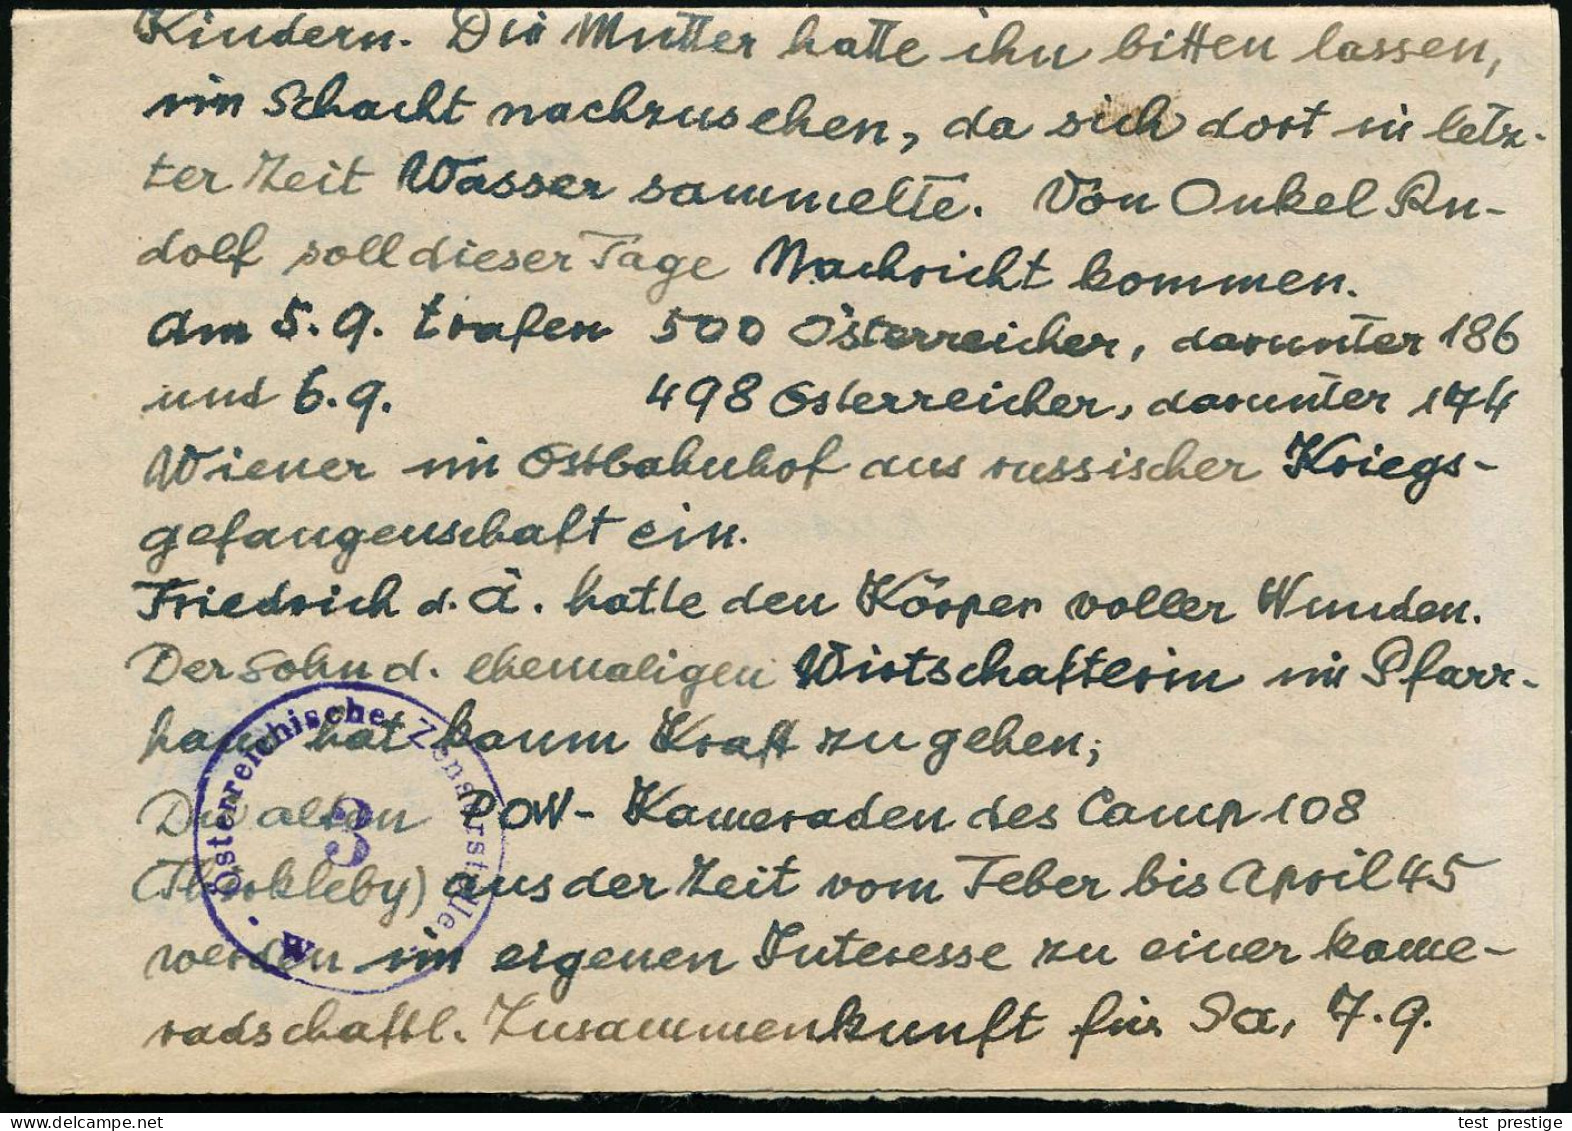 Kindern. Die Mutter hatte ihn bitten lassen,
im Schacht nachzusehen, da sich dort in letz-
ter Zeit Wasser sammelte. Von Onkel Ru-
dolf soll dieser Tage Nachricht kommen.
Am 5.9. trafen 500 Österreicher, darunter 186
und 6.9. 498 Österreicher, darunter 174
Wiener im Ostbahnhof aus russischer Kriegs-
gefangenschaft ein.
Friedrich d. Ä. hatte den Körper voller Wunden.
Der Sohn d. ehemaligen Wirtschafterin im Pfarr-
haus hat kaum Kraft zu gehen;
Die alten POW-Kameraden des Camp 108
(Thirkleby) aus der Zeit vom Feber bis April 45
werden im eigenen Interesse zu einer kame-
radschaftl. Zusammenkunft für Sa, 7.9.
Österreichische Zensurstelle
3
W
test_prestige